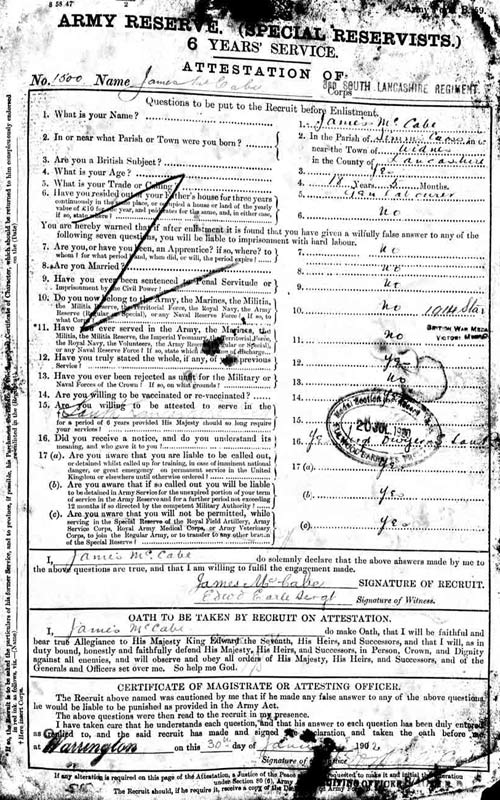 8 58 47
ARMY RESERVE. (SPECIAL RESERVISTS.)
6 YEARS' SERVICE.
ATTESTATION OF
No. 1500 Name James Mc Cabe Corps 3RD SOUTH LANCASHIRE REGIMENT
Questions to be put to the Recruit before Enlistment.
1. What is your Name?
1. James Mc Cabe
2. In or near what Parish or Town were you born?
2. In the Parish of in or
near the Town of Widnes
in the County of Lancashire
3. Are you a British Subject?
3. Yes
4. What is your Age?
4. 18 Years 5 Months.
5. What is your Trade or Calling
5. Labourer
6. Have you resided out of your Father's house for three years
continuously in the same place, or occupied a house or land of the yearly
value of £10 for one year, and paid rates for the same, and, in either case,
if so, state where?
6. No
You are hereby warned that if after enlistment it is found that you have given a wilfully false answer to any of the
following seven questions, you will be liable to imprisonment with hard labour.
7. Are you, or have you been, an Apprentice? if so, where? to
whom? for what period? and, when did, or will, the period expire?
7. No
8. Are you Married?
8. No
9. Have you ever been sentenced to Penal Servitude or
Imprisonment by the Civil Power?
9. No
10. Do you now belong to the Army, the Marines, the Militia,
the Militia Reserve, the Territorial Force, the Royal Navy, the Army
Reserve (Regular or Special), or any Naval Reserve Force? If so, to
what Corps?
10. No
1914 Star
BRITISH WAR MEDAL
VICTORY MEDAL
*11. Have you ever served in the Army, the Marines, the
Militia, the Militia Reserve, the Imperial Yeomanry, the Territorial Force,
the Royal Navy, the Volunteers, the Army Reserve (Regular or Special),
or any Naval Reserve Force? If so, state which and cause of discharge
11. No
12. Have you truly stated the whole, if any, of your previous
Service?
12. Yes
13. Have you ever been rejected as unfit for the Military or
Naval Forces of the Crown? If so, on what grounds?
13. No
14. Are you willing to be vaccinated or re-vaccinated?
14.
15. Are you willing to be attested to serve in the
for a period of 6 years provided His Majesty should so long require
your services?
15.
20 JUL 1920
16. Did you receive a notice, and do you understand its
meaning, and who gave it to you?
16. Yes
17 (a). Are you aware that you are liable to be called out,
or detained whilst called up for training, in case of imminent national
danger, or great emergency on permanent service in the United
Kingdom or elsewhere until otherwise ordered?
17 (a). Yes
(b). Are you aware that if so called out you will be liable
to be detained in Army Service for the unexpired portion of your term
of service in the Army Reserve and for a further period not exceeding
12 months if so directed by the competent Military Authority?
(b). Yes
(c). Are you aware that you will not be permitted, while
serving in the Special Reserve of the Royal Field Artillery, Army
Service Corps, Royal Army Medical Corps, or Army Veterinary
Corps, to join the Regular Army, or to transfer to any other branch
of the Special Reserve?
(c). Yes
I, James Mc. Cabe do solemnly declare that the above answers made by me to
the above questions are true, and that I am willing to fulfil the engagement made.
James Mc Cabe SIGNATURE OF RECRUIT.
Edwd Earle Sergt Signature of Witness.
OATH TO BE TAKEN BY RECRUIT ON ATTESTATION.
I, James McCabe do make Oath, that I will be faithful and
bear true Allegiance to His Majesty King Edward the Seventh, His Heirs, and Successors, and that I will, as in
duty bound, honestly and faithfully defend His Majesty, His Heirs, and Successors, in Person, Crown, and Dignity
against all enemies, and will observe and obey all orders of His Majesty, His Heirs, and Successors, and of the
Generals and Officers set over me. So help me God.
CERTIFICATE OF MAGISTRATE OR ATTESTING OFFICER.
The Recruit above named was cautioned by me that if he made any false answer to any of the above questions
he would be liable to be punished as provided in the Army Act.
The above questions were then read to the recruit in my presence.
I have taken care that he understands each question, and that his answer to each question has been duly entered
as replied to, and the said recruit has made and signed the declaration, and taken the oath before me
at Warrington on this 30th day of 190
Signature of
If any alteration is required on this page of the Attestation, a Justice of the Peace requested to make it and initial the alteration
under Section 80 (6), Army
The Recruit should, if he require it, receive a copy of the